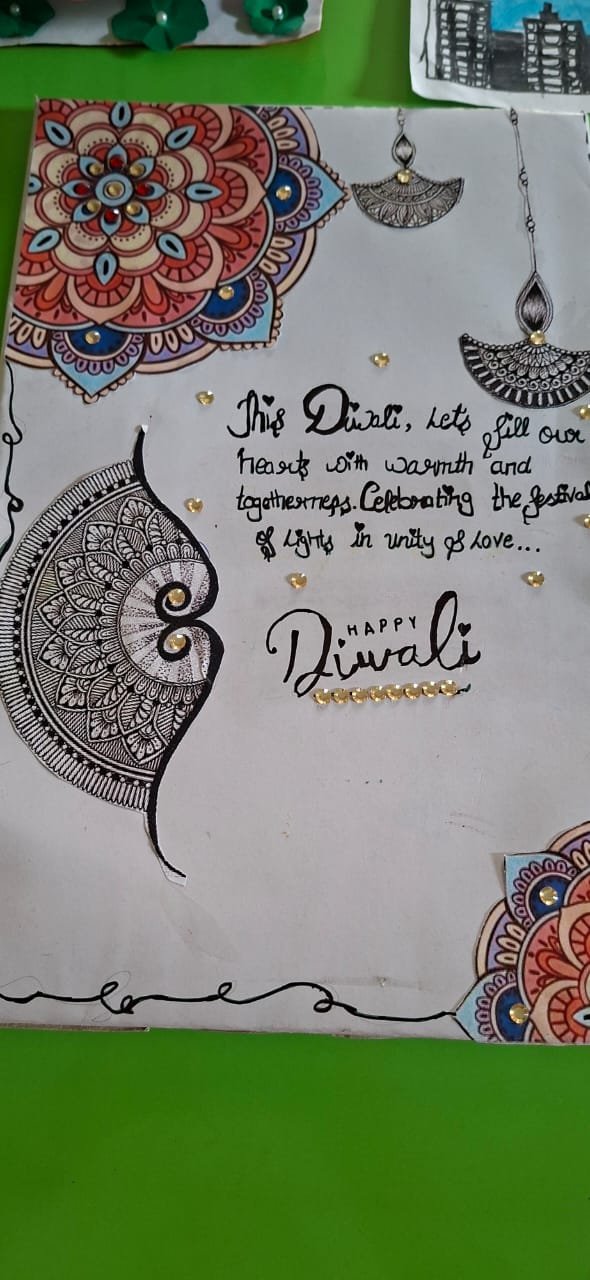 This Diwali, Let's fill our
hearts with warmth and
togetherness. Celebrating the festival
of Lights in unity of Love...
HAPPY
Diwali